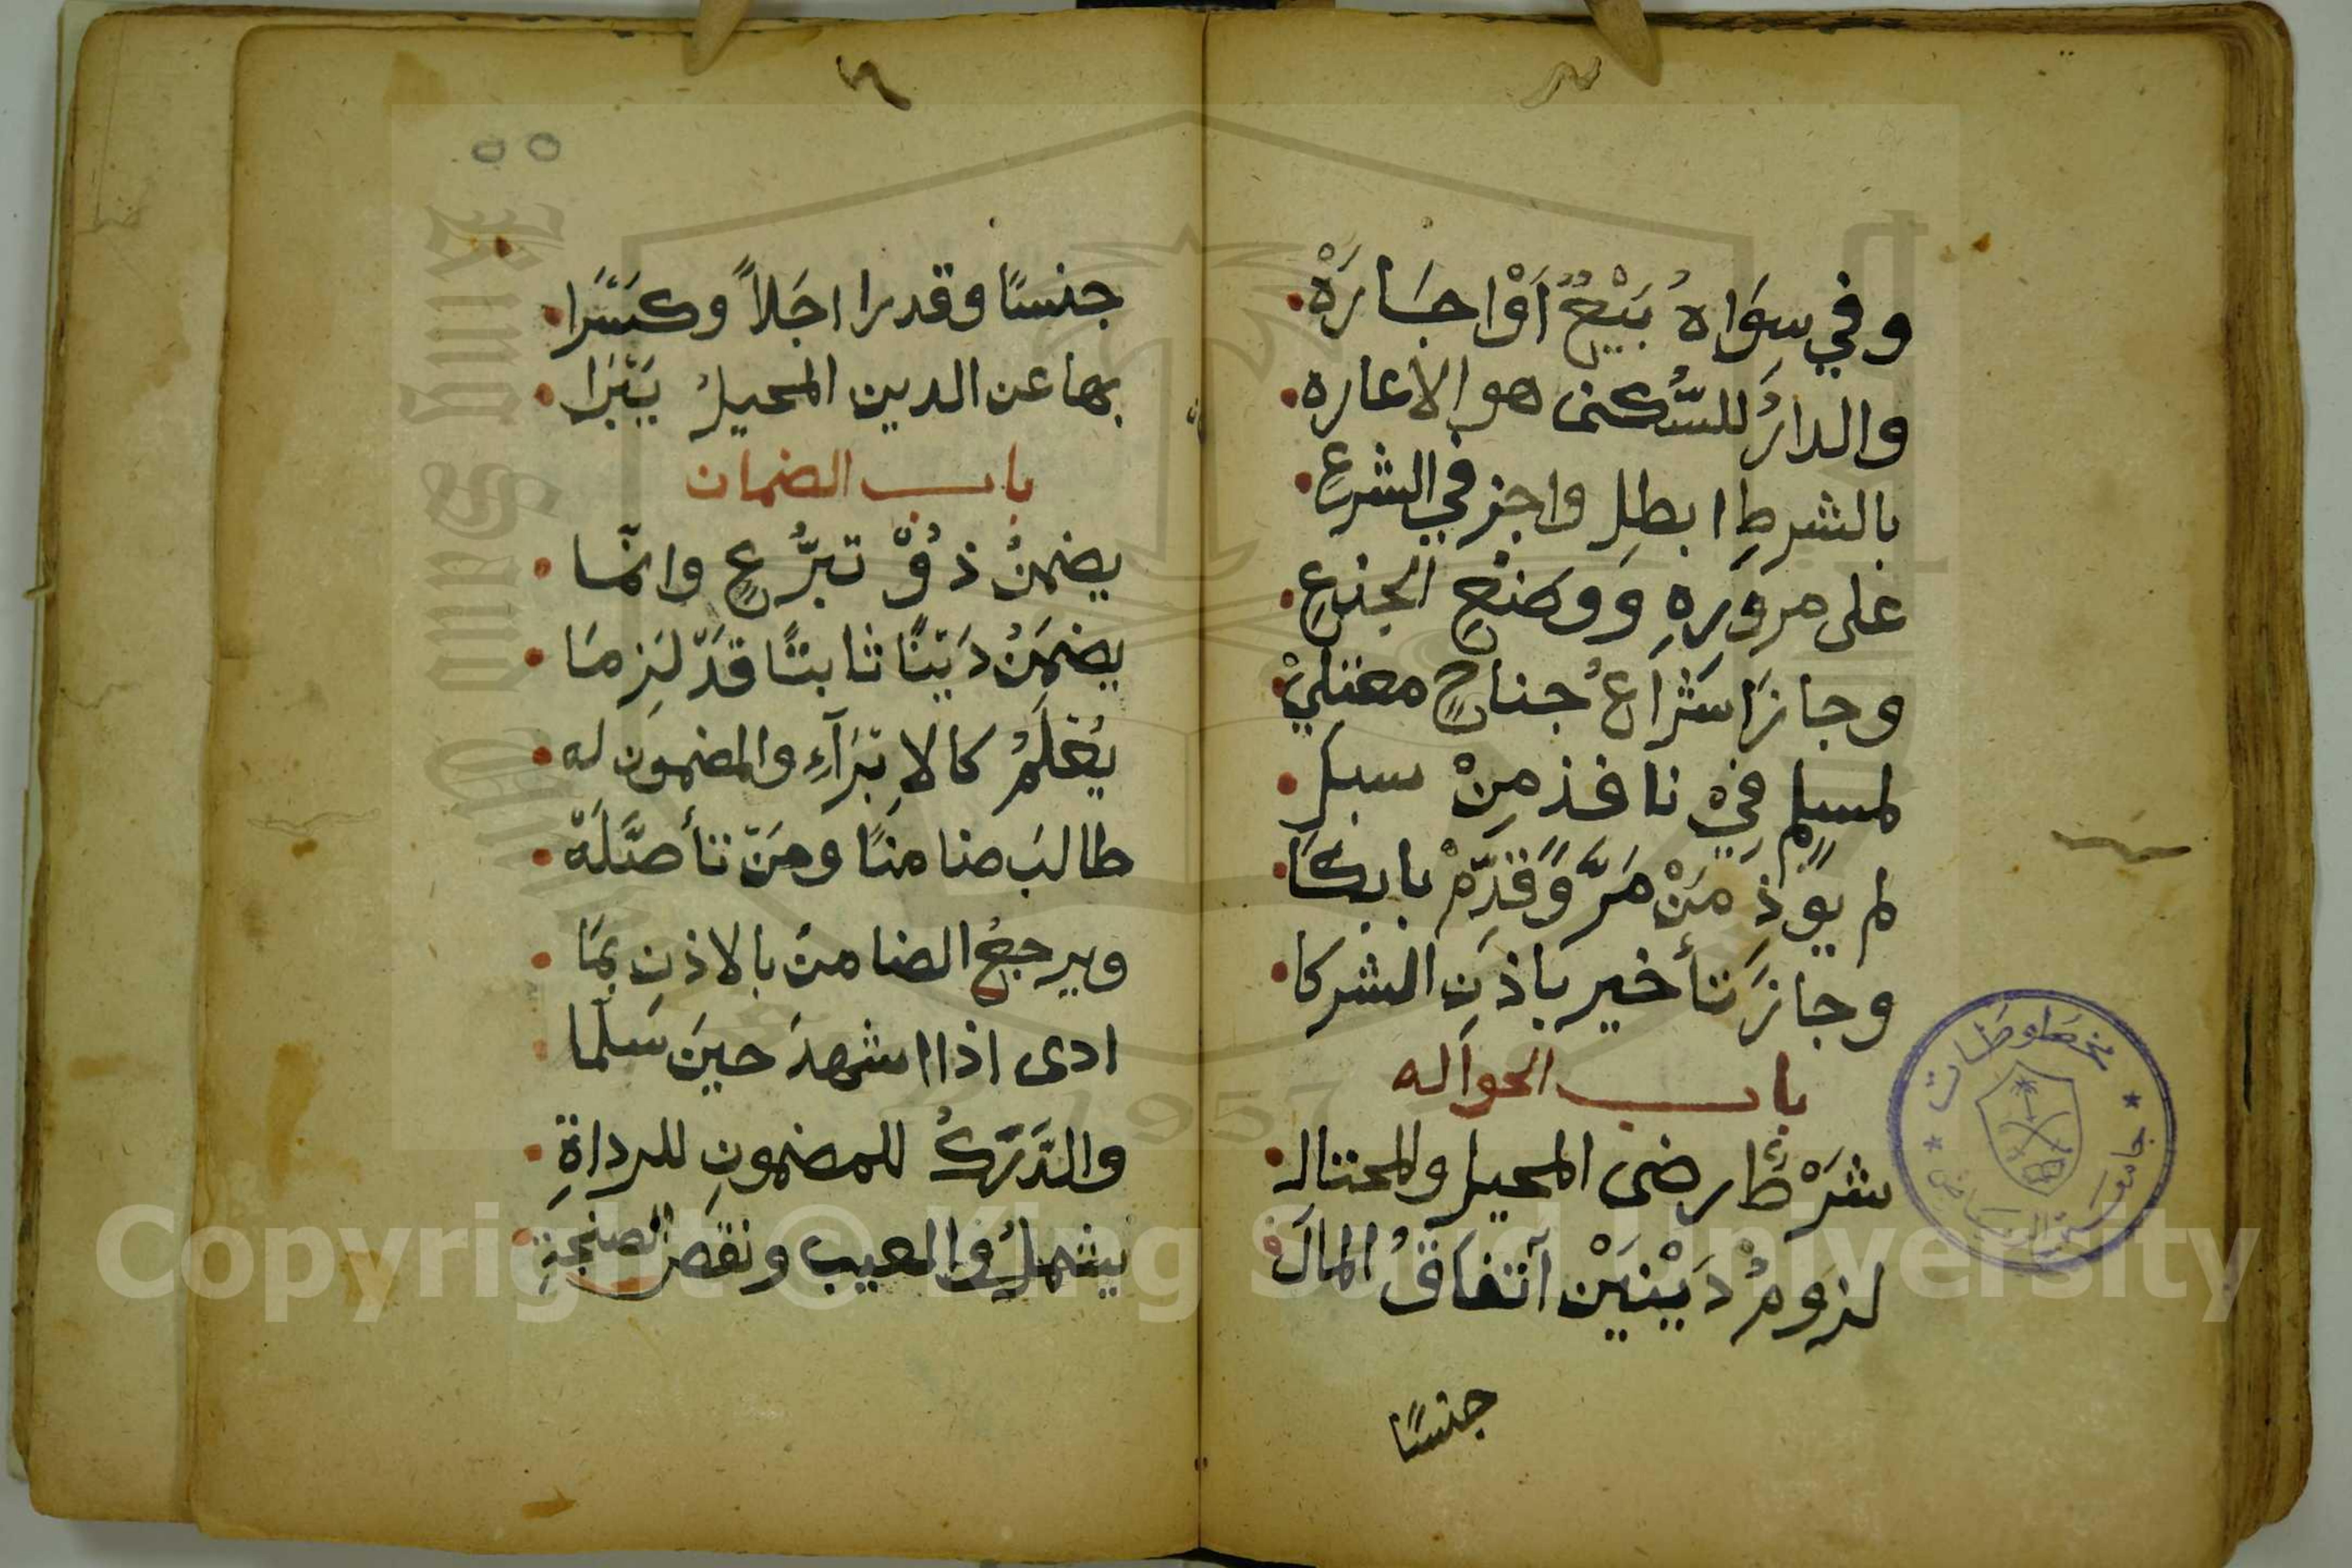 وفي سِوَاهُ بَيْعٌ اَوْ اجَارَهْ
والدارُ للسُّكنى هو الاعاره
بالشرطِ ابطِل واجز في الشرعِ
على مروَرِهِ وَوَضْعِ الجذعِ
وجازَ اشْرَاعُ جناحٍ معتليْ
لمسلمٍ فيْ نافذ مِنْ سبل
لم يوذَ مَنْ مَرَّ وَقدِّمْ بابكَا
وجازَ تأخير باذنِ الشركا
باب الحواله
شَرْطٌ رضى المحيل والمحتال
لزومُ دَيْنَيْن اَتفاقُ المالَ
جنسًا
مخطوطات
جامعة الرياض
٥٥
جنسًا وقدرا اجَلاً وكسْرَا
بها عن الدين المحيلُ يَبْرَا
باب الضمان
يضمنُ ذوْ تبرُّعٍ وانمّا
يضمَنُ دَيْنًا ثابتًا قدْ لَزِمَا
يُعْلَمُ كالاِبْرَآءِ والمضمون له
طالبَ ضامنًا ومَنْ تأصَّلَهْ
ويرجعُ الضامنُ بالاذنِ بمَا
ادى اذا اشهدَ حينَ سَلَّما
والدَّرَكُ للمضمونِ للرداةِ
يشملُ والعيب ونقص الصنجةِ
Copyright © King Saud University
King Saud University
1957